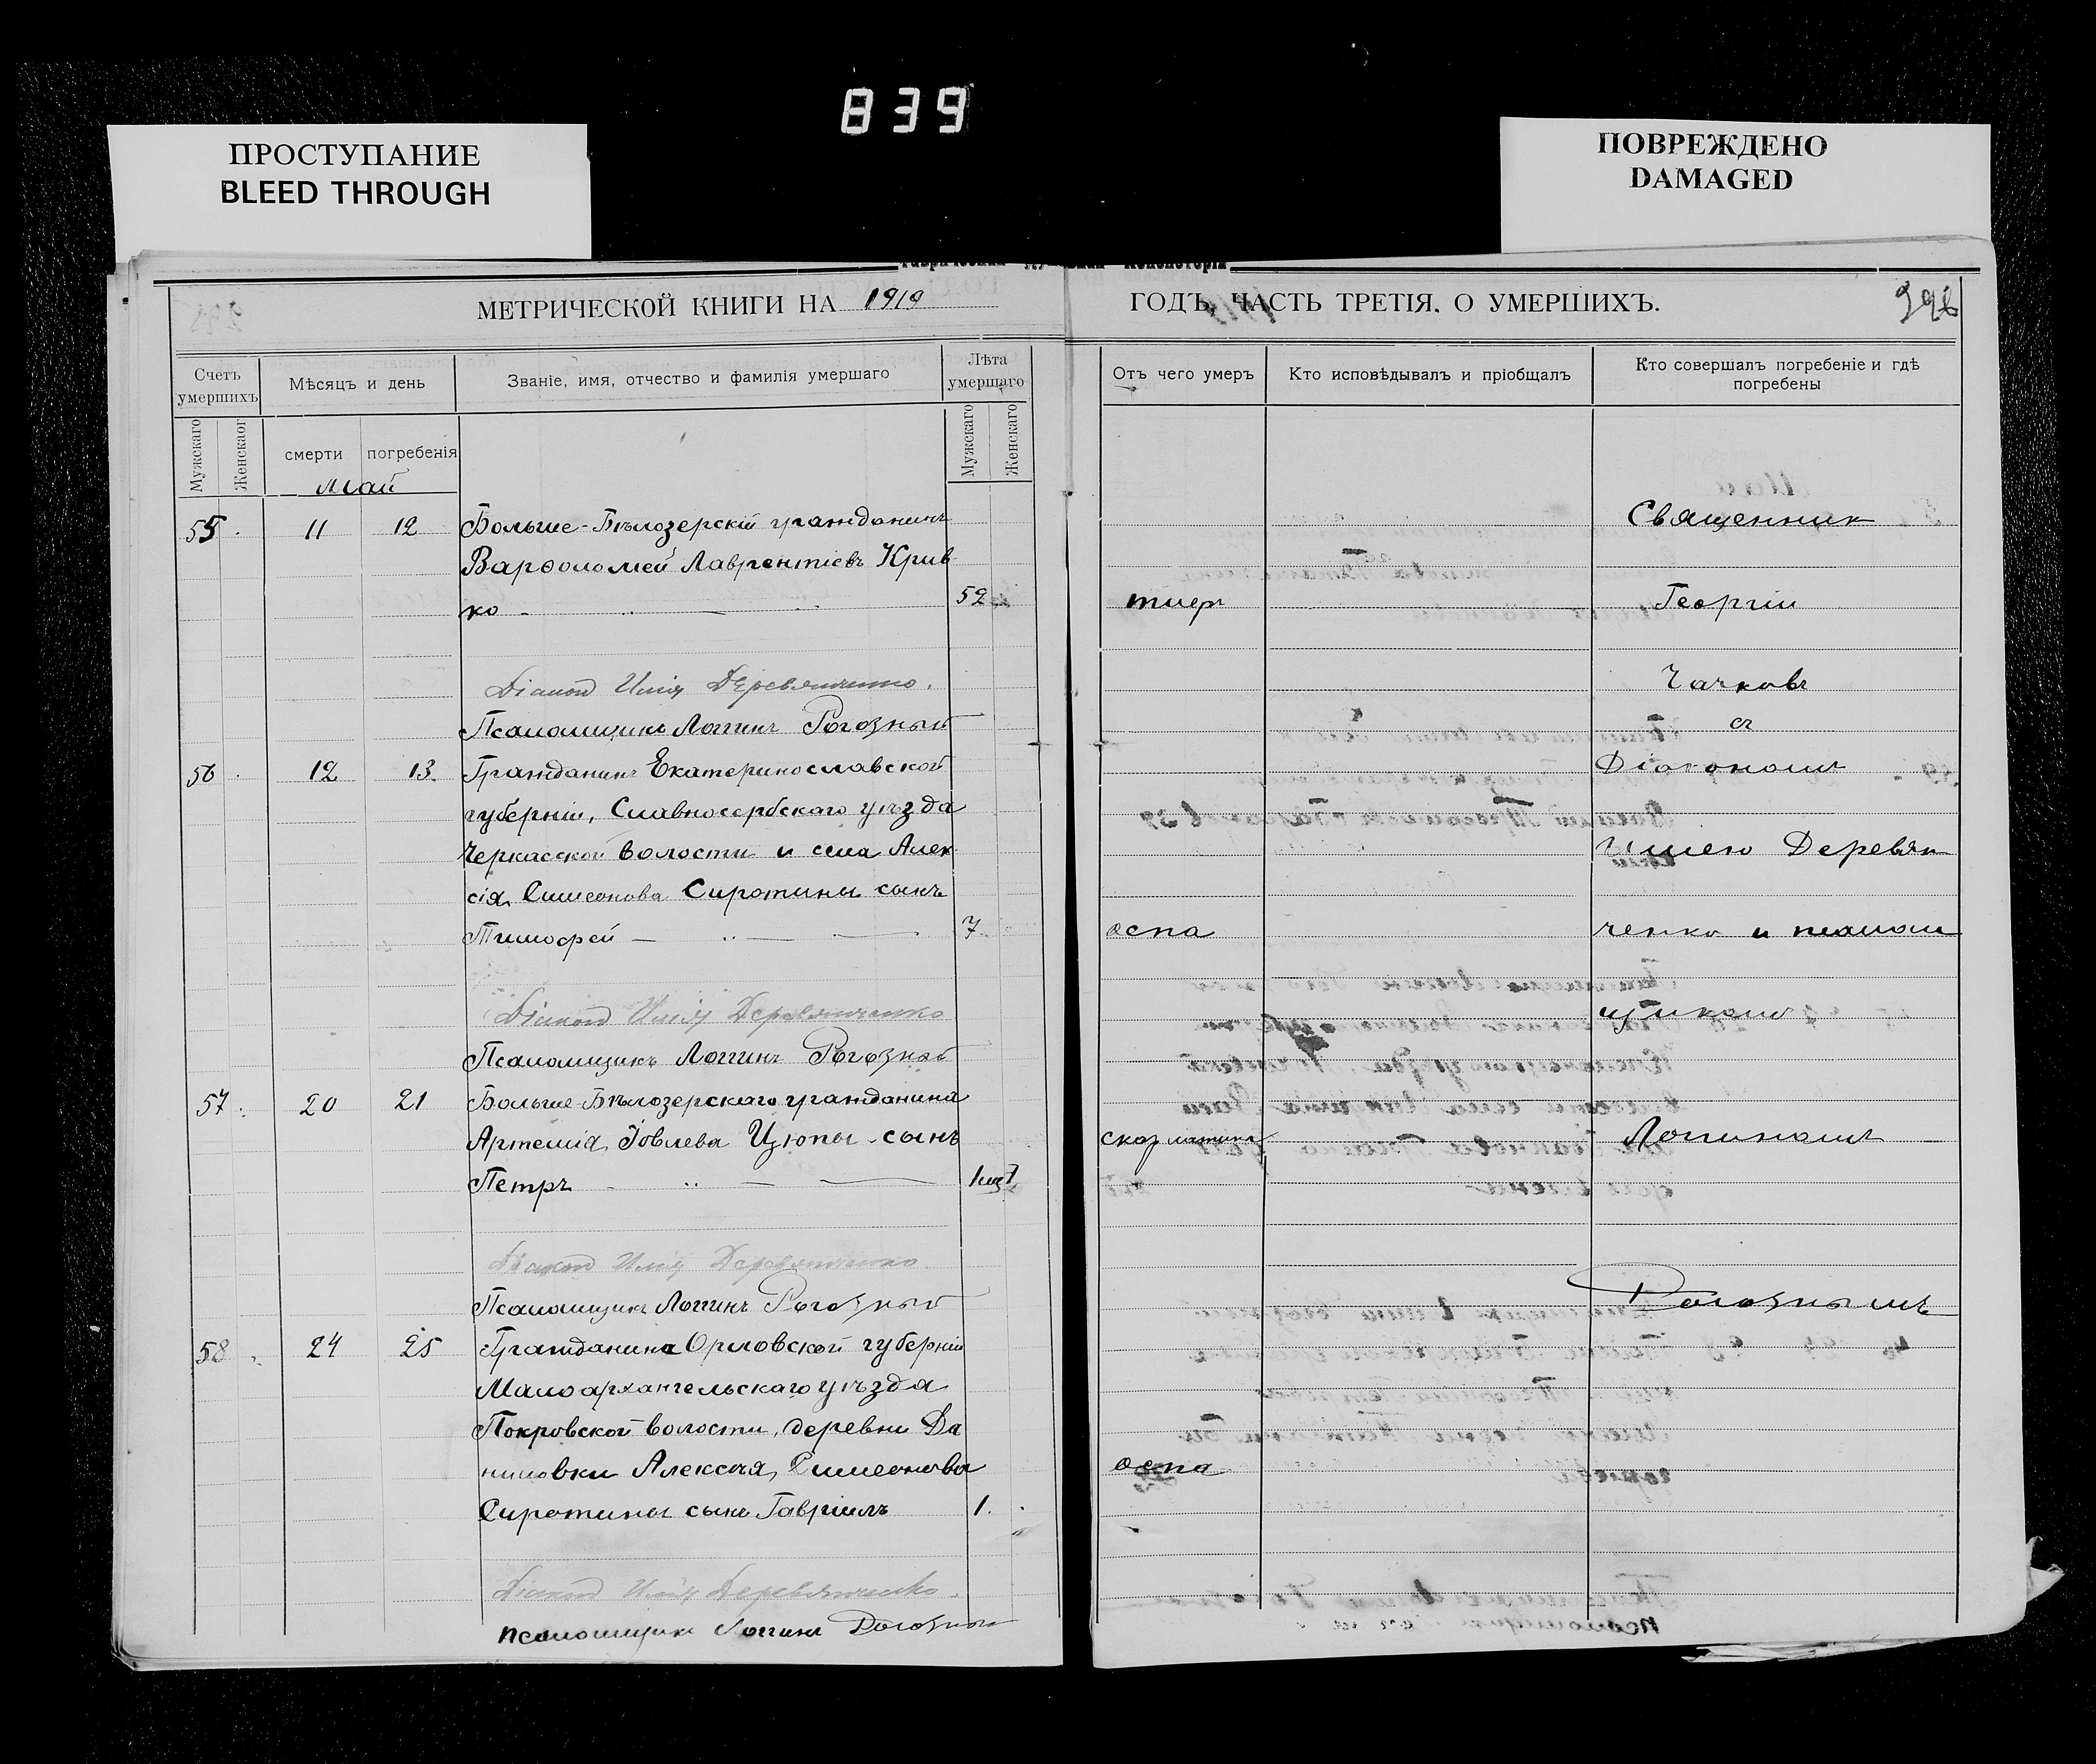 839
ПРОСТУПАНИЕ
BLEED THROUGH
ПОВРЕЖДЕНО
DAMAGED
МЕТРИЧЕСКОЙ КНИГИ НА 1919
ГОДЪ, ЧАСТЬ ТРЕТІЯ. О УМЕРШИХЪ.
Счетъ умершихъ
Мѣсяцъ и день
Званіе, имя, отчество и фамилія умершаго
Лѣта умершаго
Отъ чего умеръ
Кто исповѣдывалъ и пріобщалъ
Кто совершалъ погребеніе и гдѣ
погребены
Мужскаго
Женскаог
смерти
погребенія
Мужскаго
Женскаго
Май
55 11 12 Больше-Бѣлозерскій гражданинъ
Варѳоломей Лаврентіевъ Крив
ко 52 тифъ
Діаконъ Илія Деревянченко.
Псаломщикъ Логгинъ Рогозный
56 12 13 Гражданина Екатеринославской
губерніи, Славносербскаго уѣзда
Черкасской волости и села Алек
сія Симеонова Сиротины сынъ
Тимофей 7 оспа
Діаконъ Илія Деревянченко
Псаломщикъ Логгинъ Рогозный
57 20 21 Больше-Бѣлозерскаго гражданина
Артемія Іовлева Цюпы сынъ скарлатина
Петръ
Діаконъ Илія Деревянченко
Псаломщикъ Логгинъ Рогозный
58 24 25 Гражданина Орловской губерніи
Малоархангельскаго уѣзда
Покровской волости, деревни Да
ниловки Алексія Симеонова оспа
Сиротины сынъ Гавріилъ 1.
Діаконъ Илія Деревянченко
Псаломщикъ Логгинъ Рогозный
Священник
Георгій
Чачковъ
съ
Діакономъ
Иліею Деревян
ченко и псалом
щикомъ
Логгиномъ
Рогознымъ